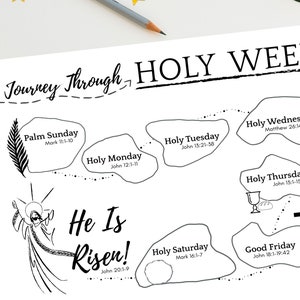 Journey Through HOLY WEE
Palm Sunday
Mark 11:1-10
Holy Monday
John 12:1-11
Holy Tuesday
John 13:21-38
Holy Wednes
Matthew 26:3
Holy Thursda
John 13:1-15
Good Friday
John 18:1-19:42
Holy Saturday
Mark 16:1-7
He Is
Risen!
John 20:1-9